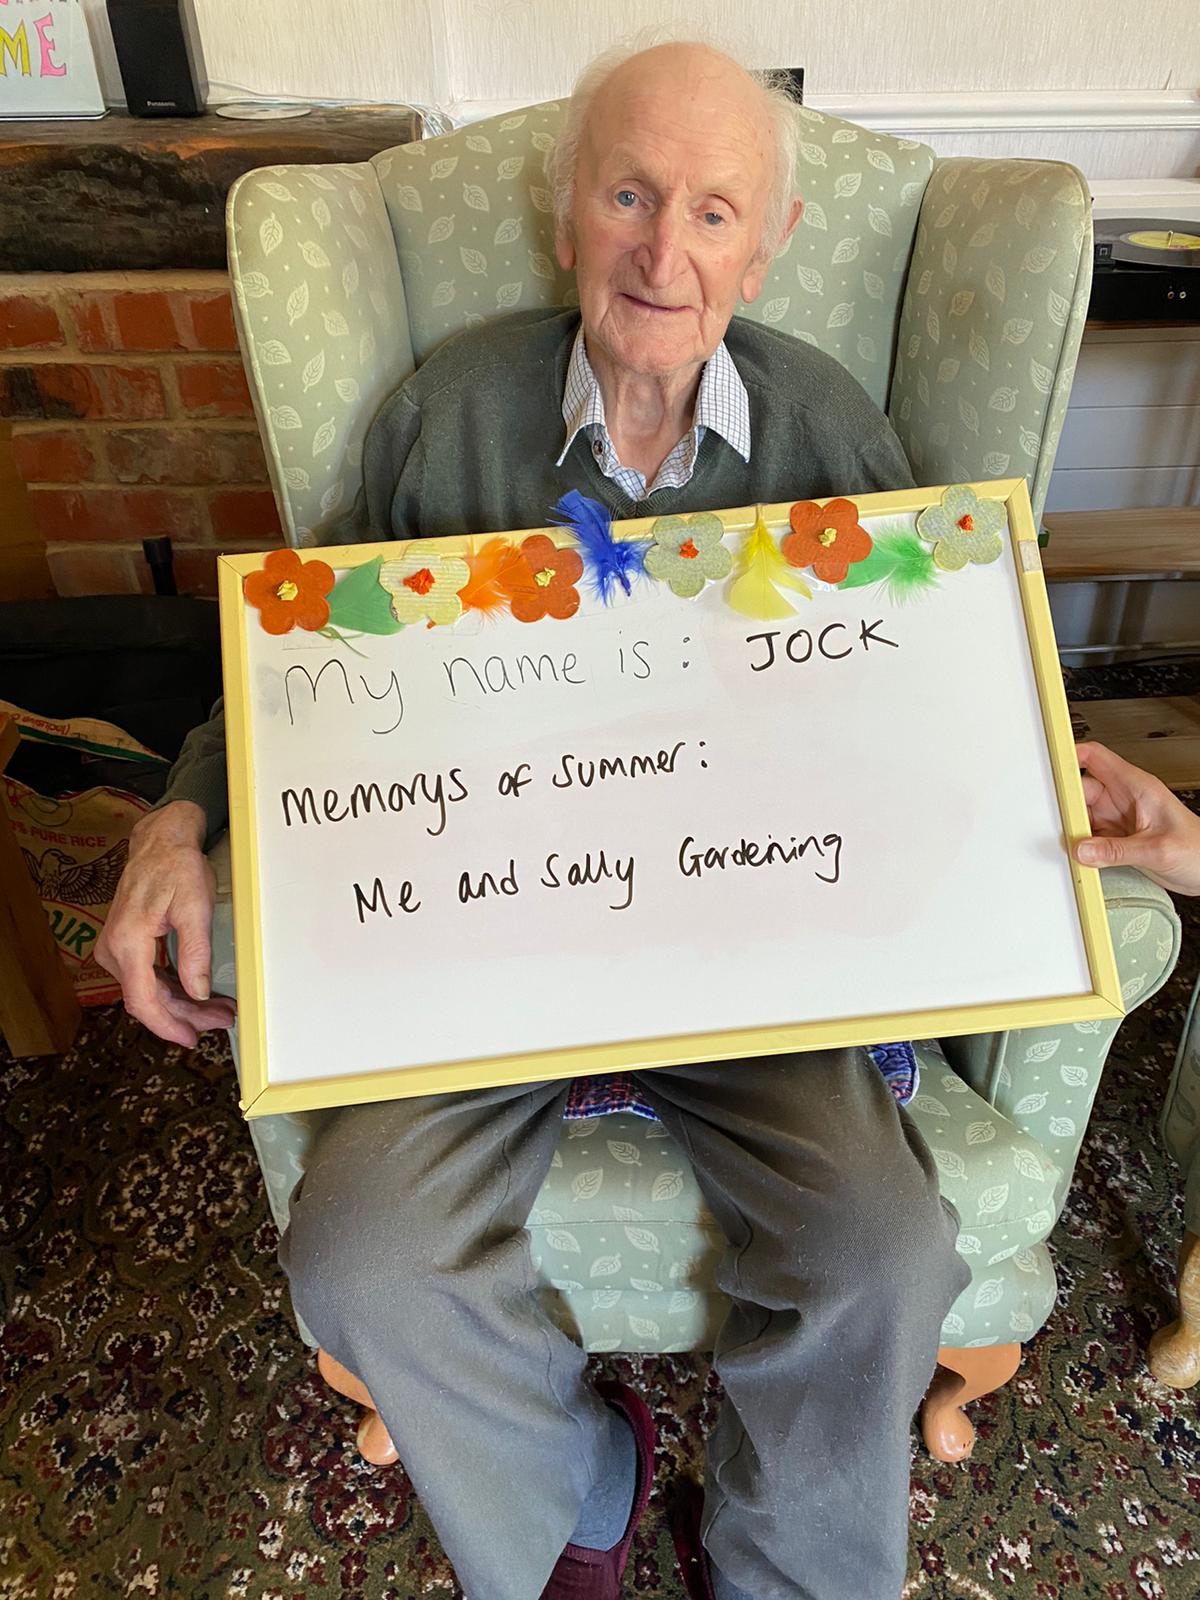 ME
Panasonic
My name is: JOCK
Memorys of Summer:
Me and Sally Gardening
PURE RICE